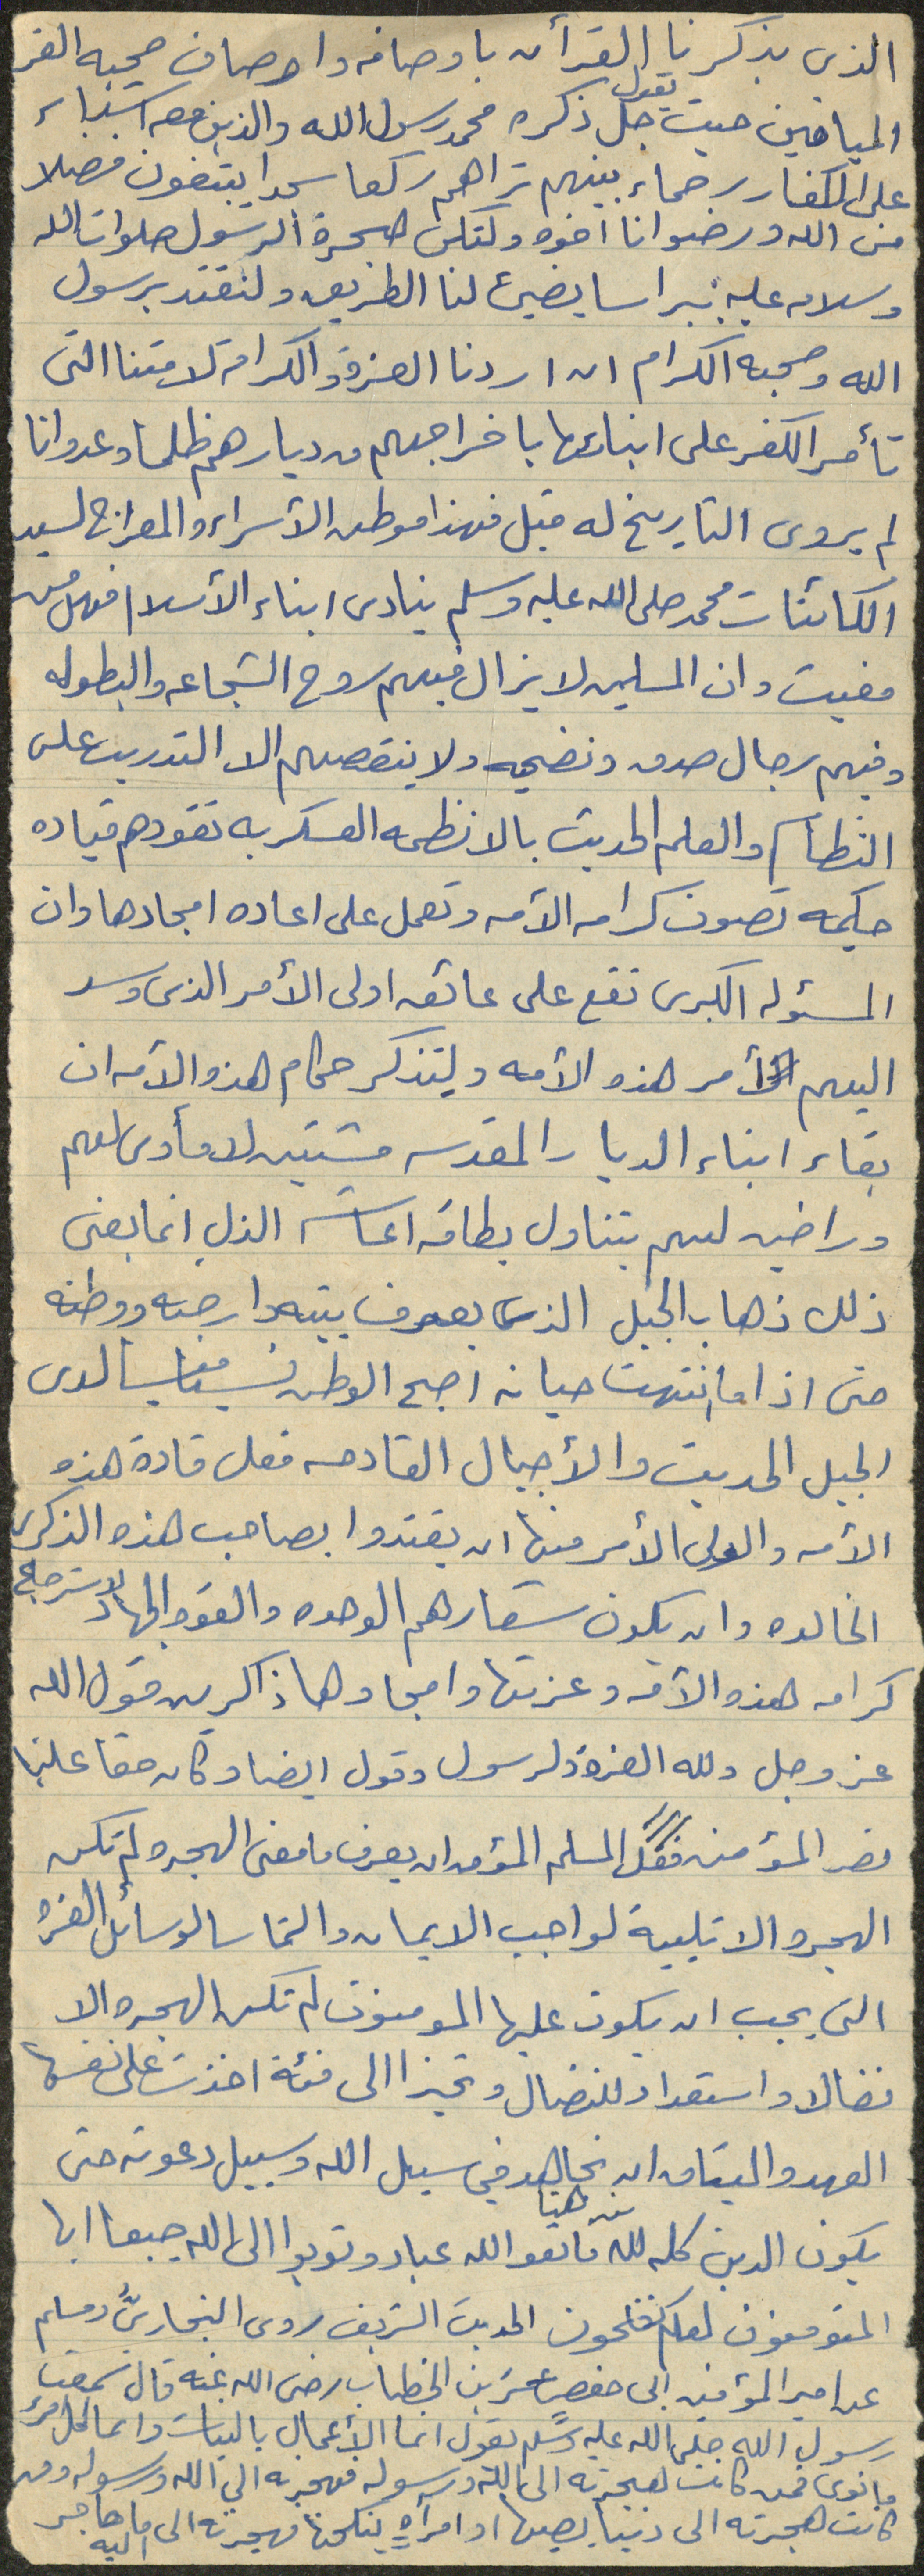 الذى يذكرنا القرأن باوصافه واوصاف صحبه الغر
الميامين حيث يقول جل ذكره محمد رسول الله والذين معه اشداء
على الكفار رحماء بينهم تراهم ركعا سجدا يبتغون فضلا
من الله ورضوانا اخوه ولتكن هجرة الرسول صلوات الله
وسلامه عليه نبراسا يضيئ لنا الطريق ولنقتد برسول
الله وصحبه الكرام ان اردنا العزة والكرامة لامتنا التى
تأمر الكفر على ابنائها باخراجهم من ديارهم ظلما وعدوانا
لم يروى التاريخ له مثيل فهذا موطن الأسراء والمعراج لسيد
الكائنات محمد صلى الله عليه وسلم ينادى ابناء الأسلام فهل من
مغيث وان المسلمين لا يزال فيهم روح الشجاعه والبطوله
وفيهم رجال صدق وتضحيه ولا ينقصهم الا التدريب على
النظام والعلم الحديث بالانظمه العسكريه تقودهم قياده
حكيمه تصون كرامه الأمه وتعمل على اعاده امجادها وان
المسئوله الكبرى تقع على عاتق اولى الأمر الذى وسد
اليهم أمر هذه الأمه وليتذكر حكام هذه الأمه ان
بقاء ابناء الديار المقدسه مشتتين لا مأوى لهم
وراضين لهم بتناول بطاقه اعاشه الذل انما يعنى
ذلك ذهاب الجيل الذى يعرف بيته وارضه ووطنه
حتى اذا ما انتهت حياته اصبح الوطن نسيا منسيا لدى
الجيل الحديث والأجيال القادمه فعلى قادة هذه
الأمه واولى الأمر منها ان يقتدوا بصاحب هذه الذكرى
الخالده وان يكون شعارهم الوحده والقوه والجهاد لاسترجاع
كرامه هذه الأمه وعزتها وامجادها ذاكرين قول الله
عز وجل ولله العزة ولرسوله وقول ايضا وكان حقا علينا
نصر المؤمنين فعلى المسلم المؤمن ان يعرف ما معنى الهجره لم تكن
الهجره الا تلبية لواجب الايمان والتماسا لوسائل العزه
التى يجب ان يكون عليها المومنون لم تكن الهجره الا
نضالا واستعداد للنضال وتحيزا الى فئة اخذت على نفسها
العهد والميثاق ان تجاهد فى سبيل الله وسبيل دعوته حتى
يكون الدين كله لله من هنا فاتقوا الله عباد وتوبوا الى الله جميعا ايها
المؤمنون لعلكم تفلحون الحديث الشريف روى البخارى ومسلم
عن امير المؤمنين ابى حفص عمر بن الخطاب رضى الله عنه قال سمعت
رسول الله صلى الله عليه وسلم يقول انما الأعمال بالنيات وانما لكل امرئ
ما نوى فمن كانت هجرته الى الله ورسوله فهجرته الى الله ورسوله ومن
كانت هجرته الى دنيا يصيبها او امرأه ينكحها فهجرته الى ما هاجر اليه